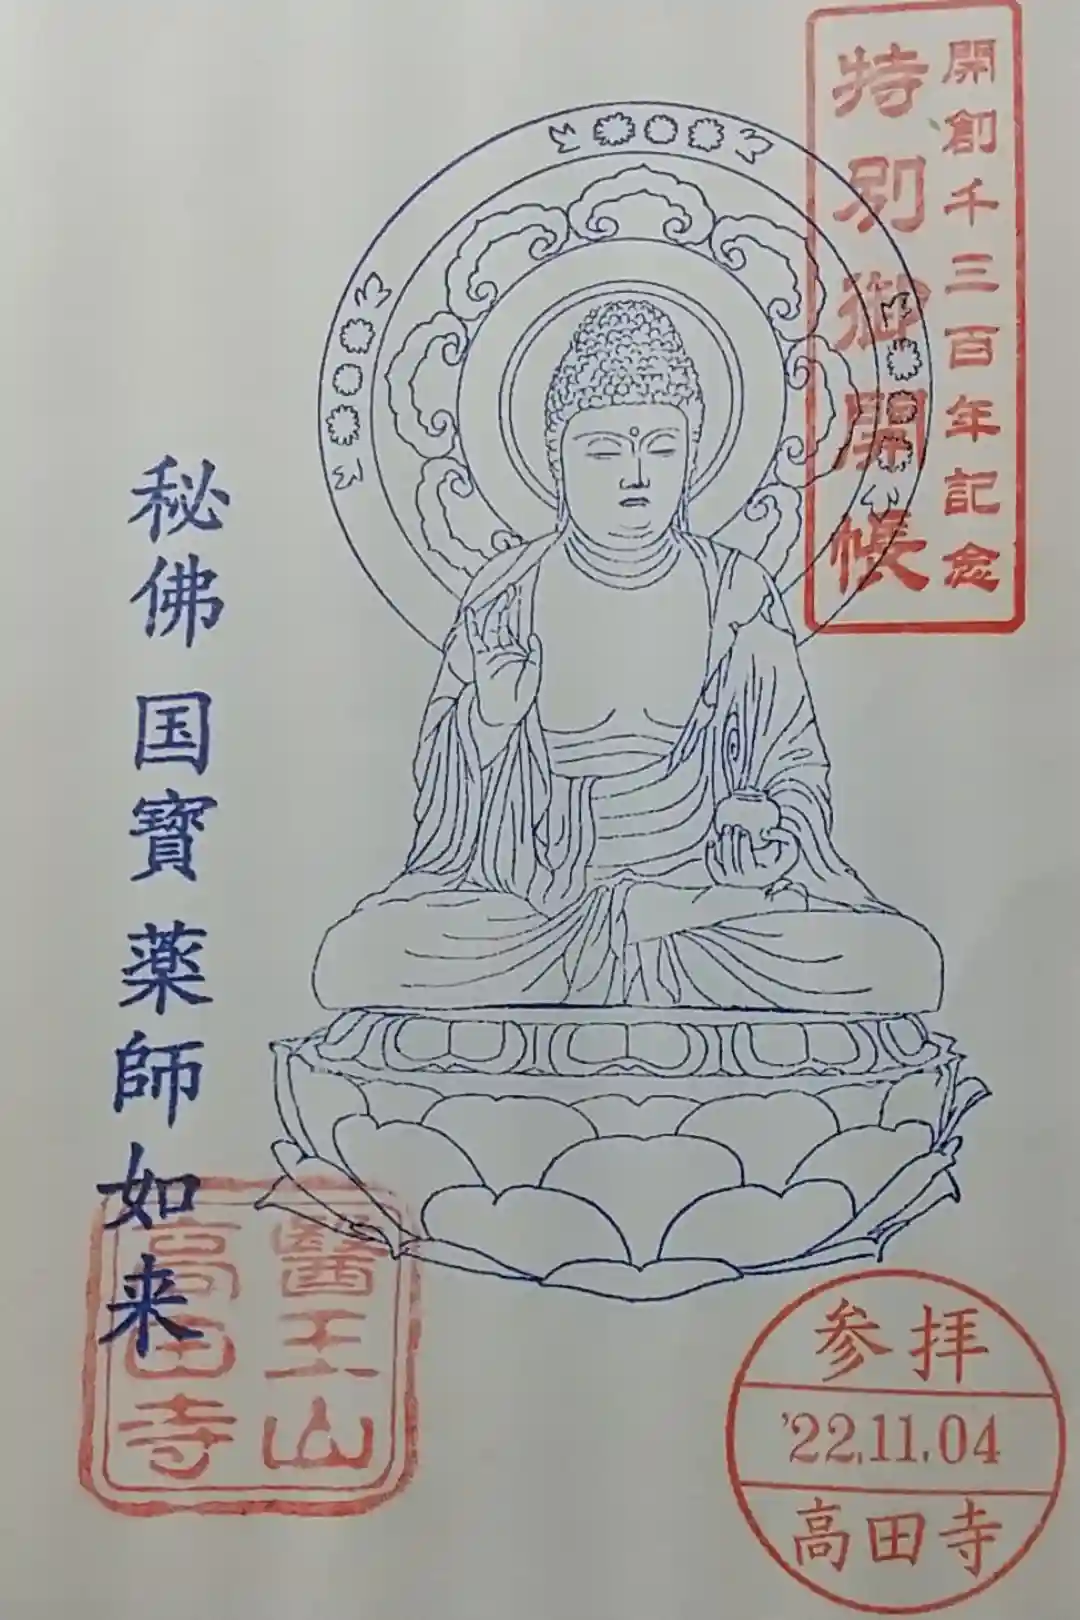 開創千三百年記念
特別御開帳
秘佛 国寳 薬師如来
醫王山
高田寺
参拝
'22.11.04
高田寺